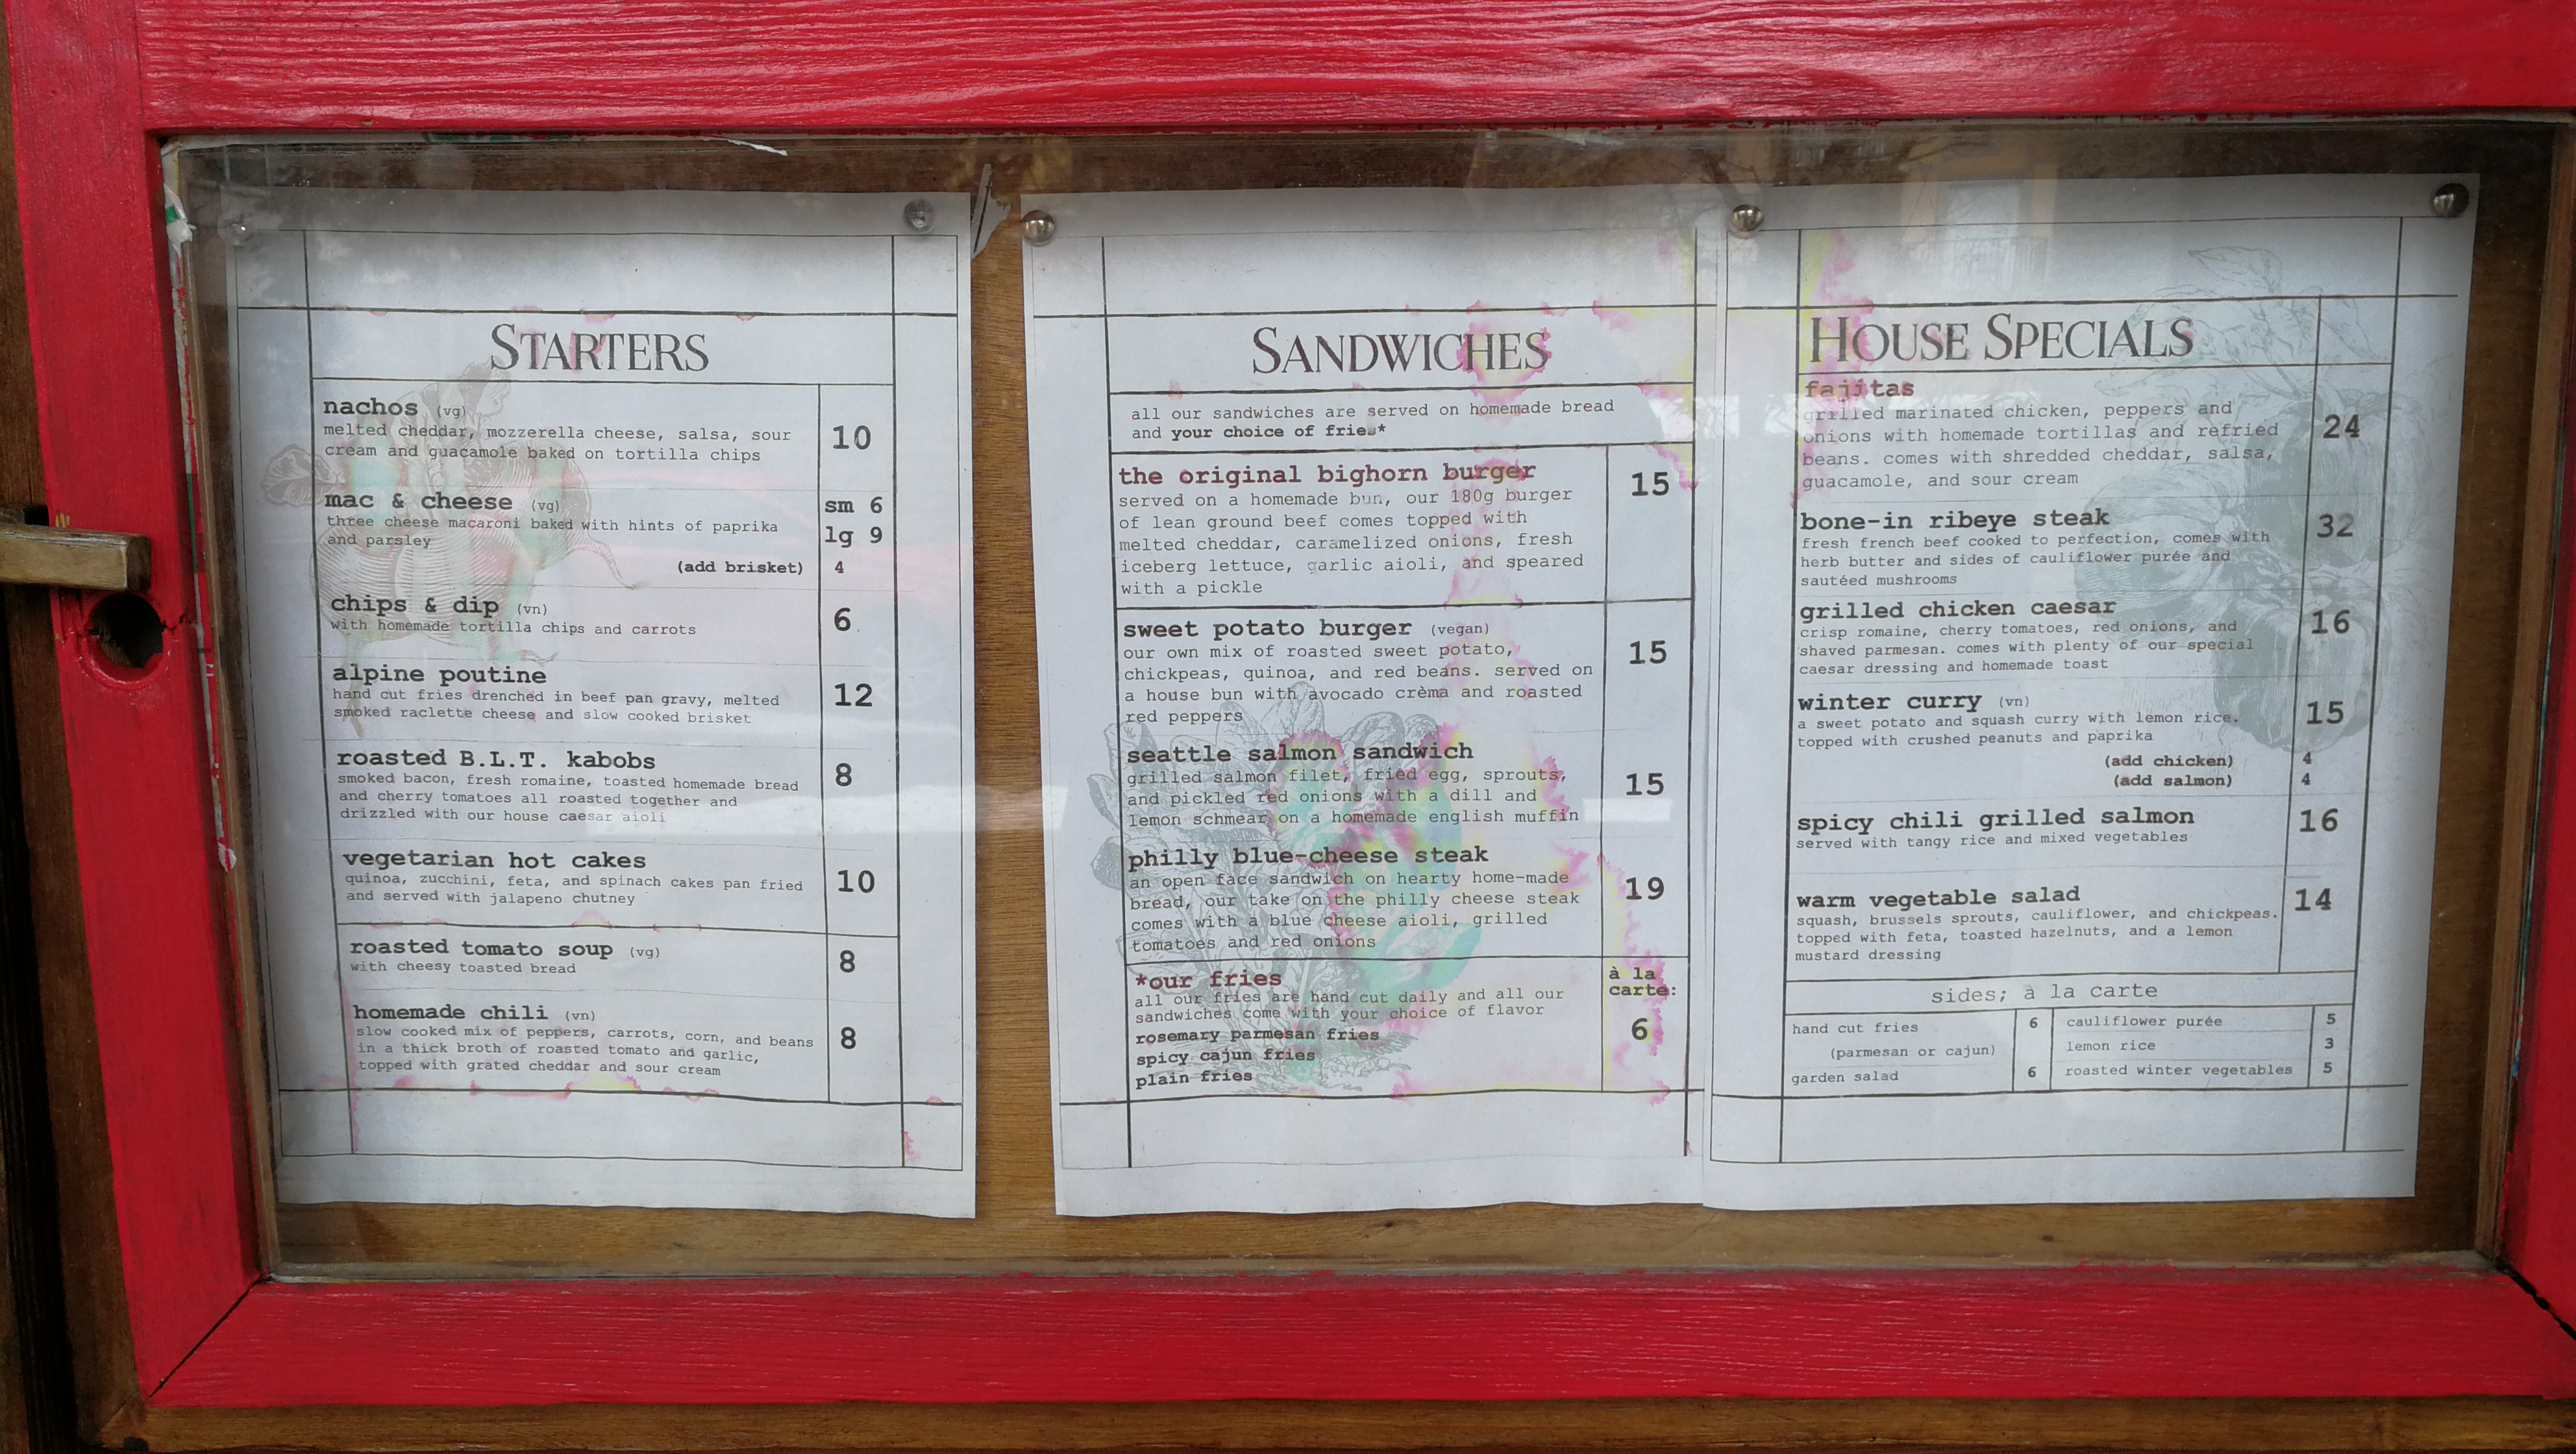 STARTERS
nachos (vg)
melted cheddar, mozzerella cheese, salsa, sour
cream and guacamole baked on tortilla chips
10
mac & cheese (vg)
three cheese macaroni baked with hints of paprika
and parsley
sm 6
lg 9
(add brisket) 4
chips & dip (vn)
with homemade tortilla chips and carrots
6
alpine poutine
hand cut fries drenched in beef pan gravy, melted
smoked raclette cheese and slow cooked brisket
12
roasted B.L.T. kabobs
smoked bacon, fresh romaine, toasted homemade bread
and cherry tomatoes all roasted together and
drizzled with our house caesar aioli
8
vegetarian hot cakes
quinoa, zucchini, feta, and spinach cakes pan fried
and served with jalapeno chutney
10
roasted tomato soup (vg)
with cheesy toasted bread
8
homemade chili (vn)
slow cooked mix of peppers, carrots, corn, and beans
in a thick broth of roasted tomato and garlic,
topped with grated cheddar and sour cream
8
SANDWICHES
all our sandwiches are served on homemade bread
and your choice of fries*
the original bighorn burger
served on a homemade bun, our 180g burger
of lean ground beef comes topped with
melted cheddar, caramelized onions, fresh
iceberg lettuce, garlic aioli, and speared
with a pickle
15
sweet potato burger (vegan)
our own mix of roasted sweet potato,
chickpeas, quinoa, and red beans. served on
a house bun with avocado crèma and roasted
red peppers
15
seattle salmon sandwich
grilled salmon filet, fried egg, sprouts,
and pickled red onions with a dill and
lemon schmear on a homemade english muffin
15
philly blue-cheese steak
an open face sandwich on hearty home-made
bread, our take on the philly cheese steak
comes with a blue cheese aioli, grilled
tomatoes and red onions
19
*our fries
all our fries are hand cut daily and all our
sandwiches come with your choice of flavor
rosemary parmesan fries
spicy cajun fries
plain fries
à la
carte:
6
HOUSE SPECIALS
fajitas
grilled marinated chicken, peppers and
onions with homemade tortillas and refried
beans. comes with shredded cheddar, salsa,
guacamole, and sour cream
24
bone-in ribeye steak
fresh french beef cooked to perfection, comes with
herb butter and sides of cauliflower purée and
sautéed mushrooms
32
grilled chicken caesar
crisp romaine, cherry tomatoes, red onions, and
shaved parmesan. comes with plenty of our special
caesar dressing and homemade toast
16
winter curry (vn)
a sweet potato and squash curry with lemon rice.
topped with crushed peanuts and paprika
15
(add chicken) 4
(add salmon) 4
spicy chili grilled salmon
served with tangy rice and mixed vegetables
16
warm vegetable salad
squash, brussels sprouts, cauliflower, and chickpeas.
topped with feta, toasted hazelnuts, and a lemon
mustard dressing
14
sides; à la carte
hand cut fries 6
(parmesan or cajun)
garden salad 6
cauliflower purée 5
lemon rice 3
roasted winter vegetables 5